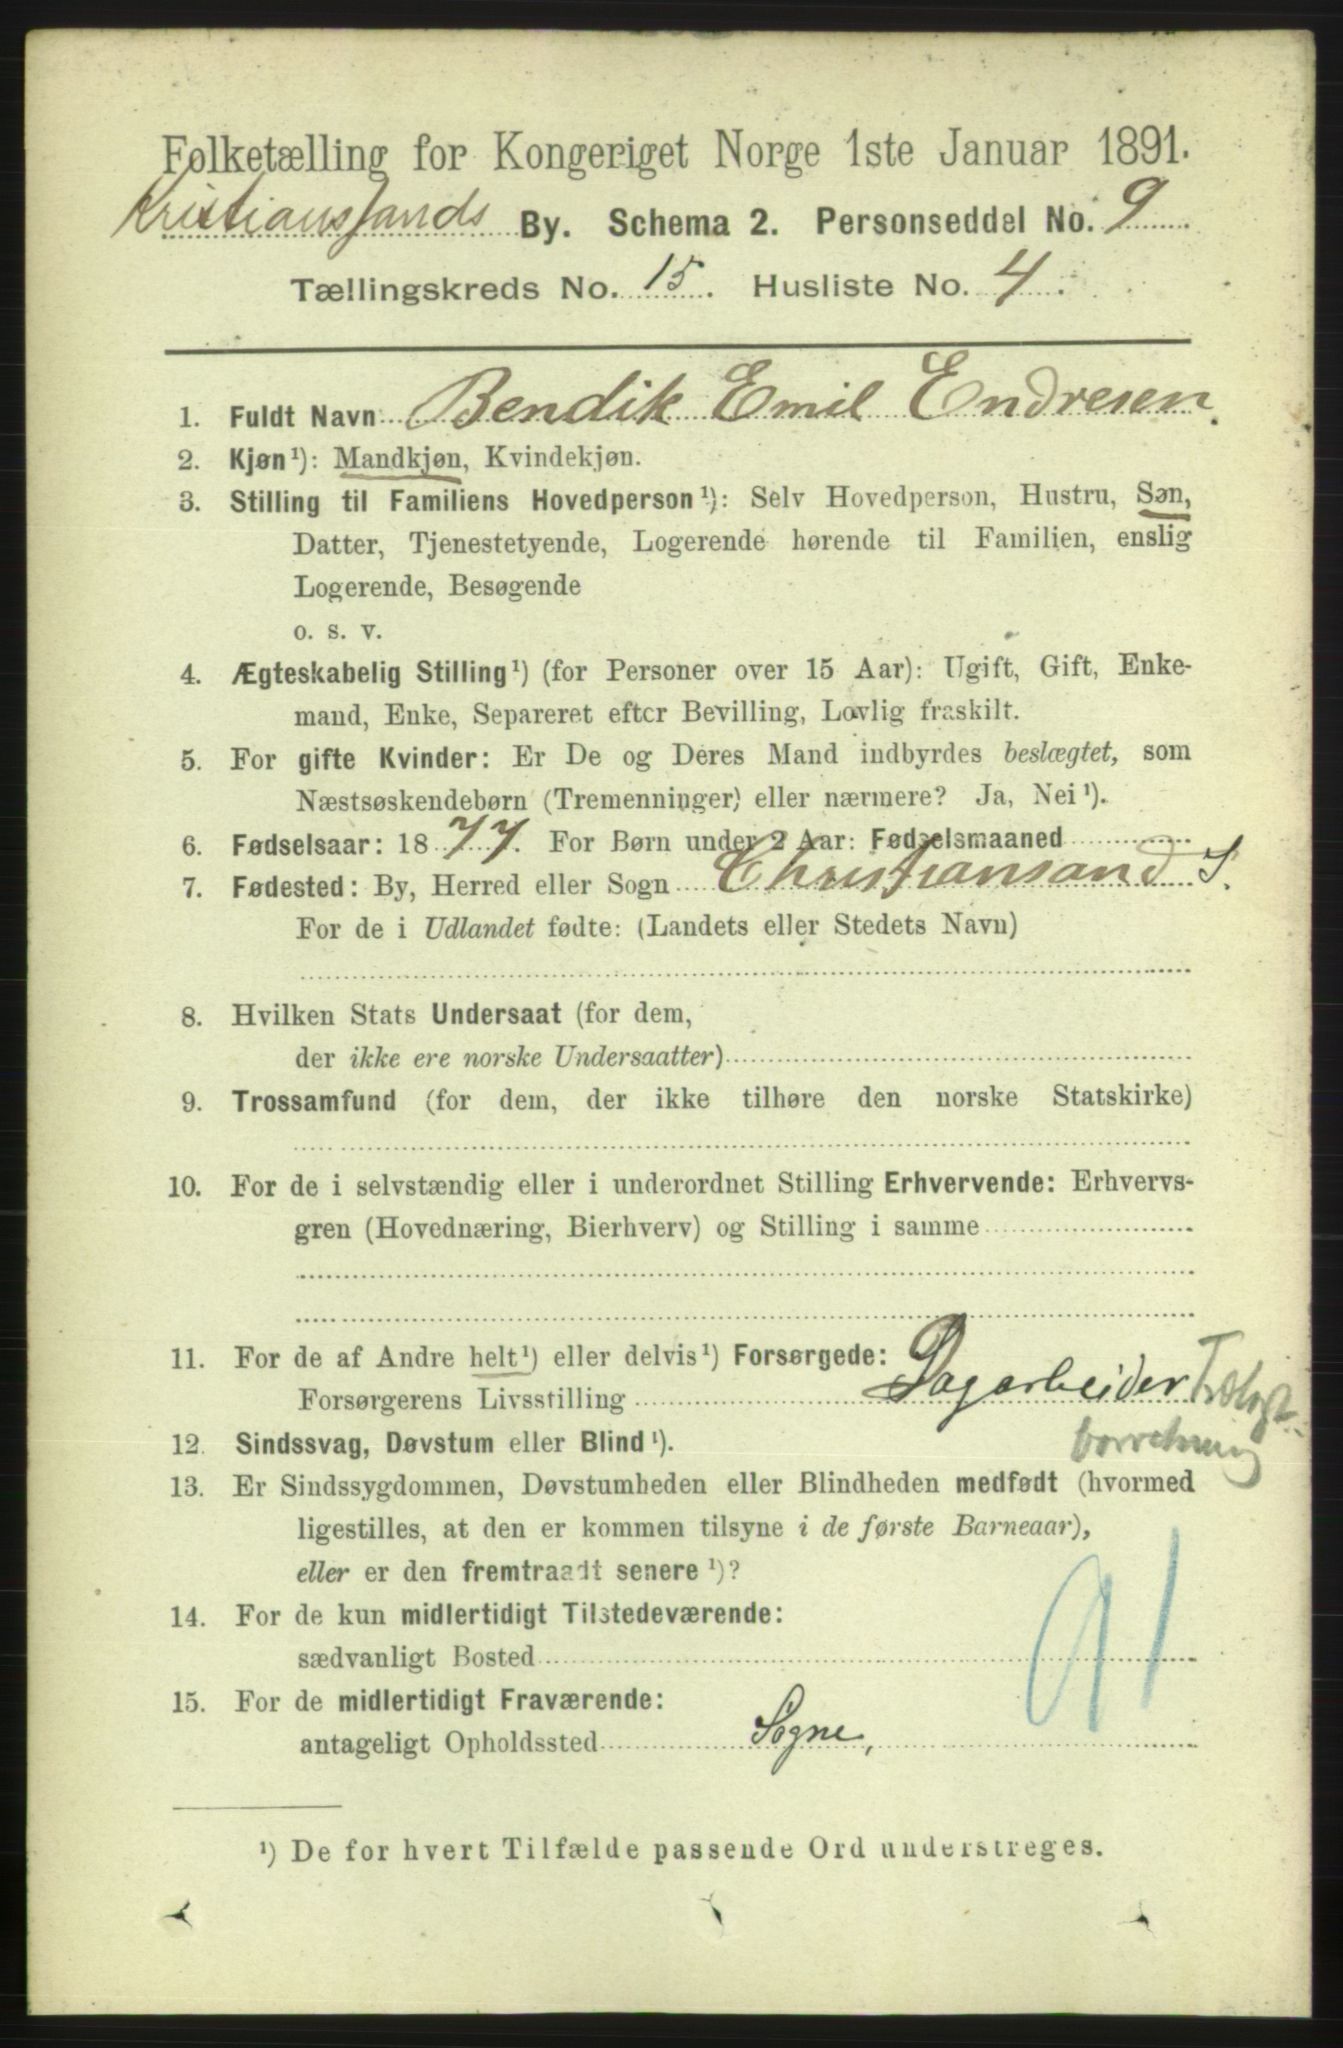 Folketælling for Kongeriget Norge 1ste Januar 1891.
Kristianssands By. Schema 2. Personseddel No. 9
Tællingskreds No. 15. Husliste No. 4.
1. Fuldt Navn Bendik Emil Endresen.
2. Kjøn¹): Mandkjøn, Kvindekjøn.
3. Stilling til Familiens Hovedperson¹): Selv Hovedperson, Hustru, Søn,
Datter, Tjenestetyende, Logerende hørende til Familien, enslig
Logerende, Besøgende
o. s. v.
4. Ægteskabelig Stilling¹) (for Personer over 15 Aar): Ugift, Gift, Enke-
mand, Enke, Separeret efter Bevilling, Lovlig fraskilt.
5. For gifte Kvinder: Er De og Deres Mand indbyrdes beslægtet, som
Næstsøskendebørn (Tremenninger) eller nærmere? Ja, Nei¹).
6. Fødselsaar: 1877. For Børn under 2 Aar: Fødselsmaaned
7. Fødested: By, Herred eller Sogn Christiansand S.
For de i Udlandet fødte: (Landets eller Stedets Navn)
8. Hvilken Stats Undersaat (for dem,
der ikke ere norske Undersaatter)
9. Trossamfund (for dem, der ikke tilhøre den norske Statskirke)
10. For de i selvstændig eller i underordnet Stilling Erhvervende: Erhvervs-
gren (Hovednæring, Bierhverv) og Stilling i samme
11. For de af Andre helt¹) eller delvis¹) Forsørgede:
Forsørgerens Livsstilling Dagarbeider
12. Sindssvag, Døvstum eller Blind¹).
13. Er Sindssygdommen, Døvstumheden eller Blindheden medfødt (hvormed
ligestilles, at den er kommen tilsyne i de første Barneaar),
eller er den fremtraadt senere¹)?
14. For de kun midlertidigt Tilstedeværende:
sædvanligt Bosted
91
15. For de midlertidigt Fraværende:
antageligt Opholdssted Søgne,
¹) De for hvert Tilfælde passende Ord understreges.